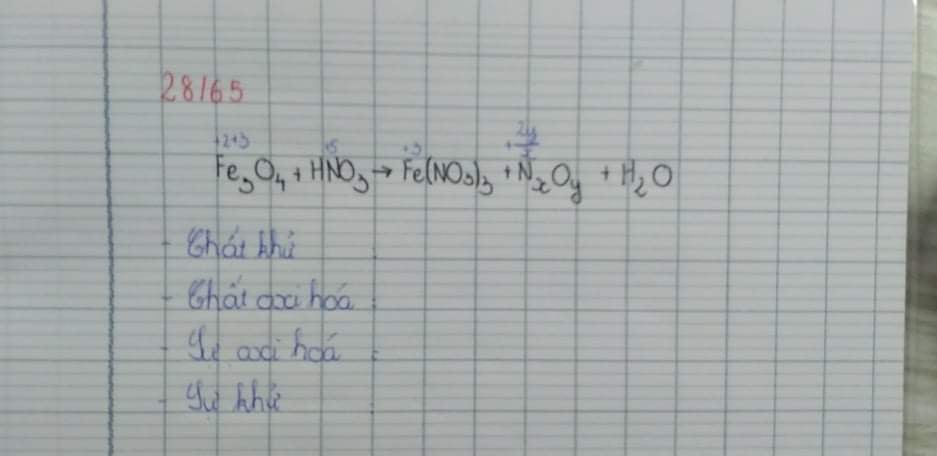 28/65
+2+3 +5 +3 +2y/x
Fe₃O₄ + HNO₃ → Fe(NO₃)₃ + NₓOy + H₂O
- Chất khử
- Chất oxi hoá
- Sự oxi hoá
- Sự khử